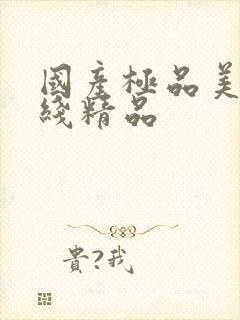 國産極品美
綫精品
貴?我